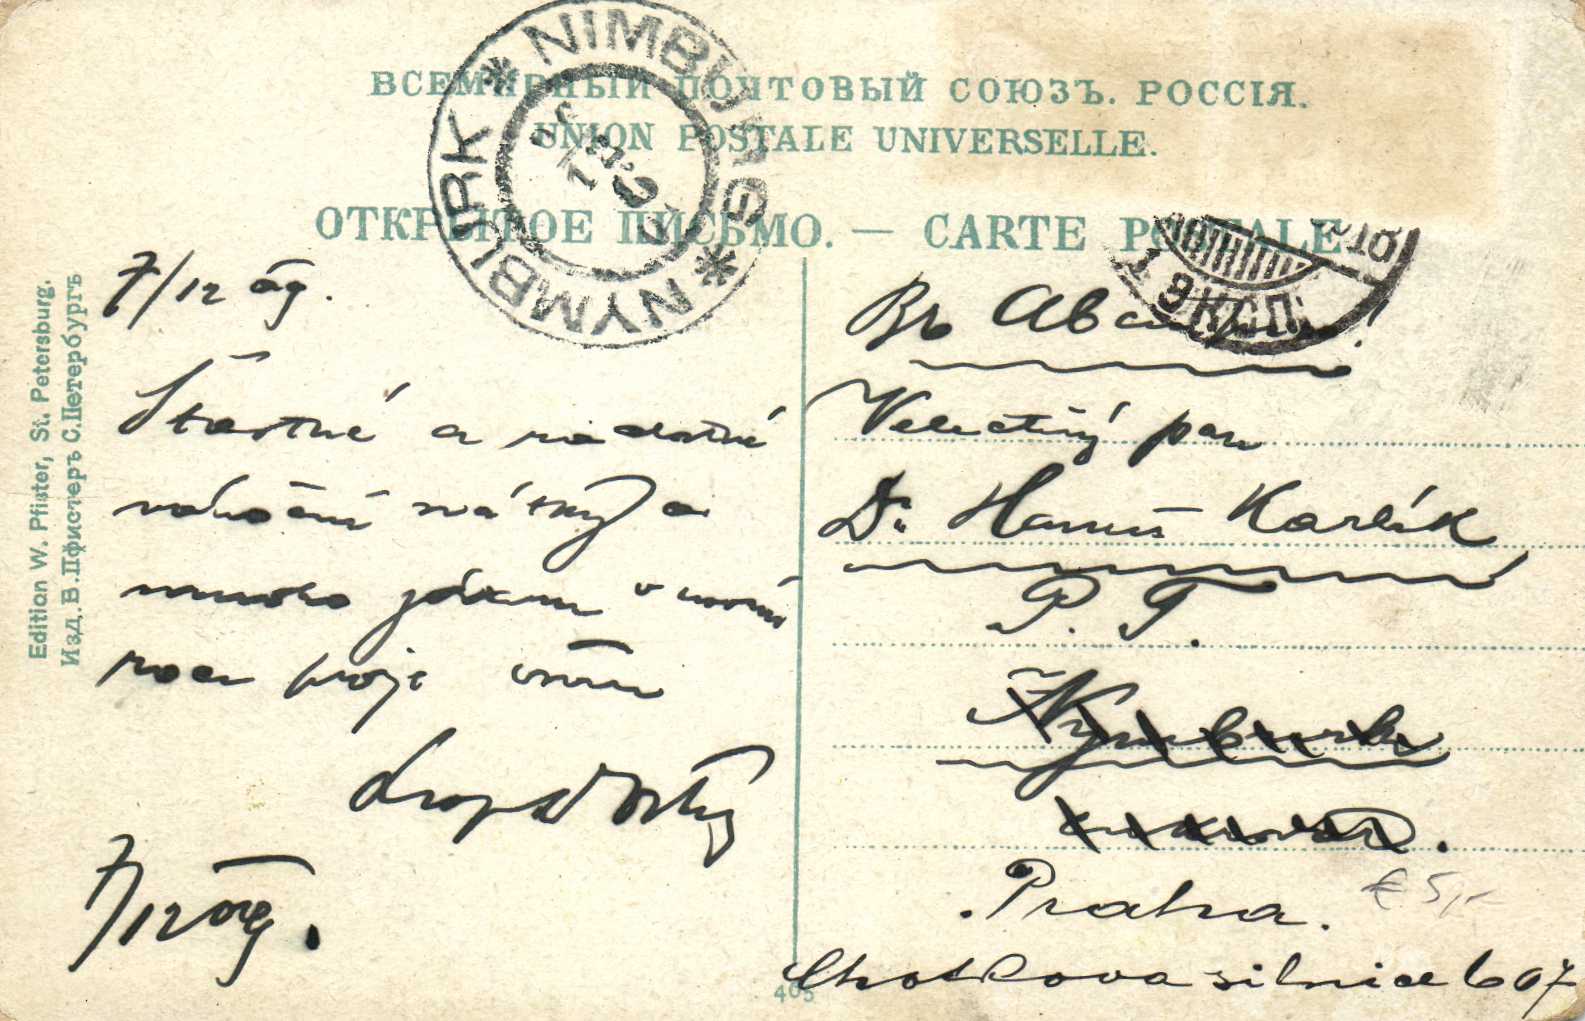 ВСЕМИРНЫЙ ПОЧТОВЫЙ СОЮЗЪ. РОССІЯ.
UNION POSTALE UNIVERSELLE.
ОТКРЫТОЕ ПИСЬМО. — CARTE POSTALE
NIMBURG * NYMBURK *
9 ЭКСП.
Edition W. Pfister, St. Petersburg.
Изд. В. Пфистеръ С.Петербургъ
7/12 09.
Šťastné a radostné
vánoční svátky a
mnoho zdaru v novém
roce přeje
7/12 09.
Въ Австрію!
Velectěný pan
Dr. Hanuš Karlík
P. T.
Nymburk
cukrovar.
Praha.
Chotkova silnice 607
€ 5,-
405